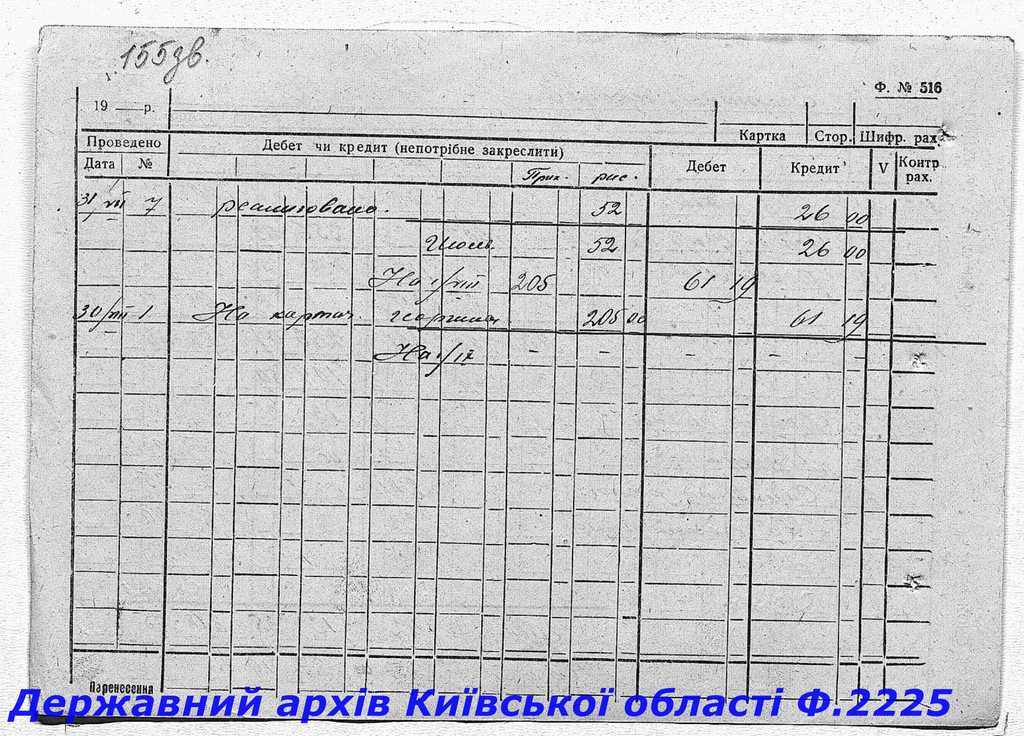 155зв.
Ф. № 516
19 — р.
Картка Стор. Шифр. рах.
Проведено Дебет чи кредит (непотрібне закреслити) Дебет Кредит V Контр рах.
Дата № Прих. рис.
31/VII 7 реализовано. 52 26 00
Июль 52 26 00
На 1/VIII 205 61 19
30/VIII 1 На карточ. 205 00 61 19
На 1/IX – – – –
Паренесення
Державний архів Київської області Ф.2225